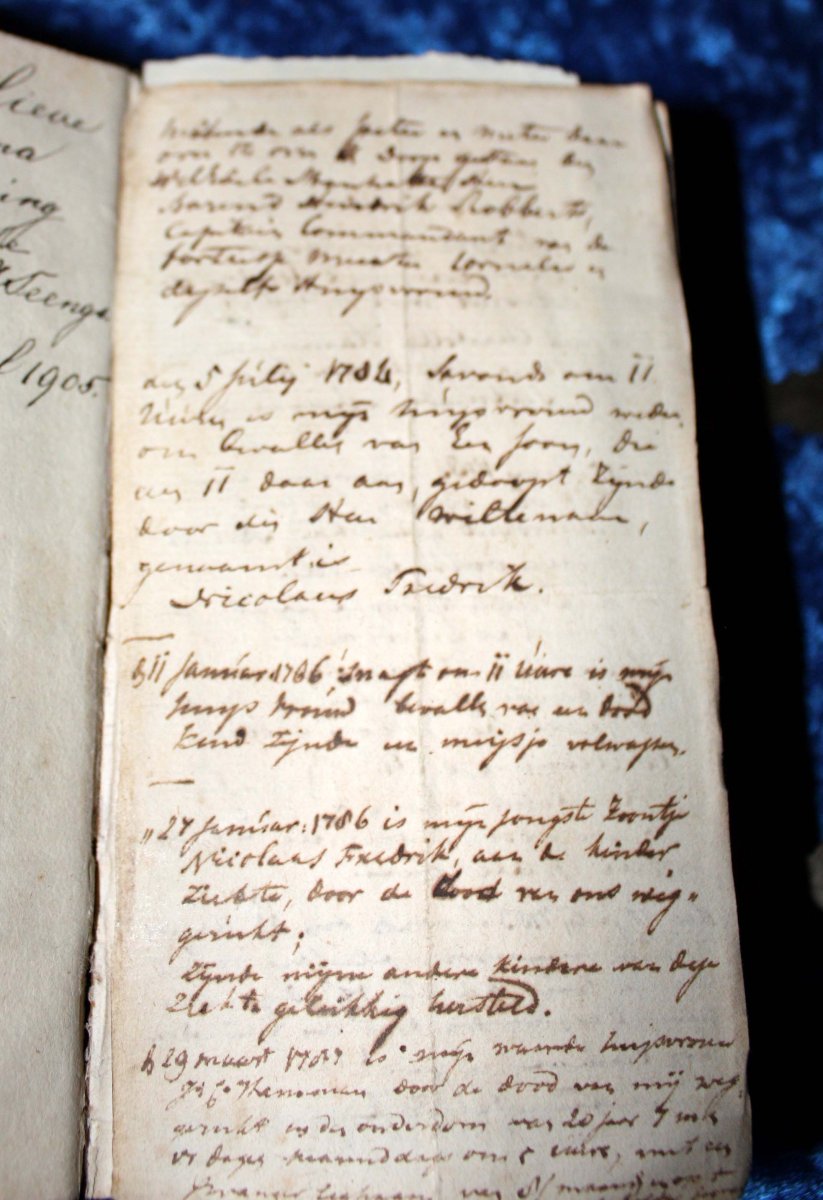 lieve
na
ing
Teenga
l 1905.
als peeter en meeter daar
over te den doop gestaan den
Wel Edele Heer
Barend Hindrik Robberts,
Capitein Commandant van de
Cornelis en
desselfs Huysvrouw.
den 5 Julij 1784, savonds om 11
Uuren is mijn Huysvrouw weder
om bevallen van Een soon, die
den 11 daar aan, gedoopt Zijnde
door den Heer Willenaar,
genaamt is
Nicolaus Fredrik.
d 11 Januar 1786 snagt om 11 Uure is mijn
huys vrouw bevallen van een dood
kind zijnde een meijsje volwassen.
" 27 Januar: 1786 is mijn jongste Zoontje
Nicolaas Fredrik, aan de kinder
Ziekte, door de dood van ons weg-
gerukt;
Zijnde mijne andere kindere van dese
Ziekte gelukkig hersteld.
d 29 maart is mijn waarde huisvrouw
door de dood van mij weg-
gerukt in den ouderdom van 20 jaar 7 m
dagen om 5 uure, met een
Zwanger Lighaam van